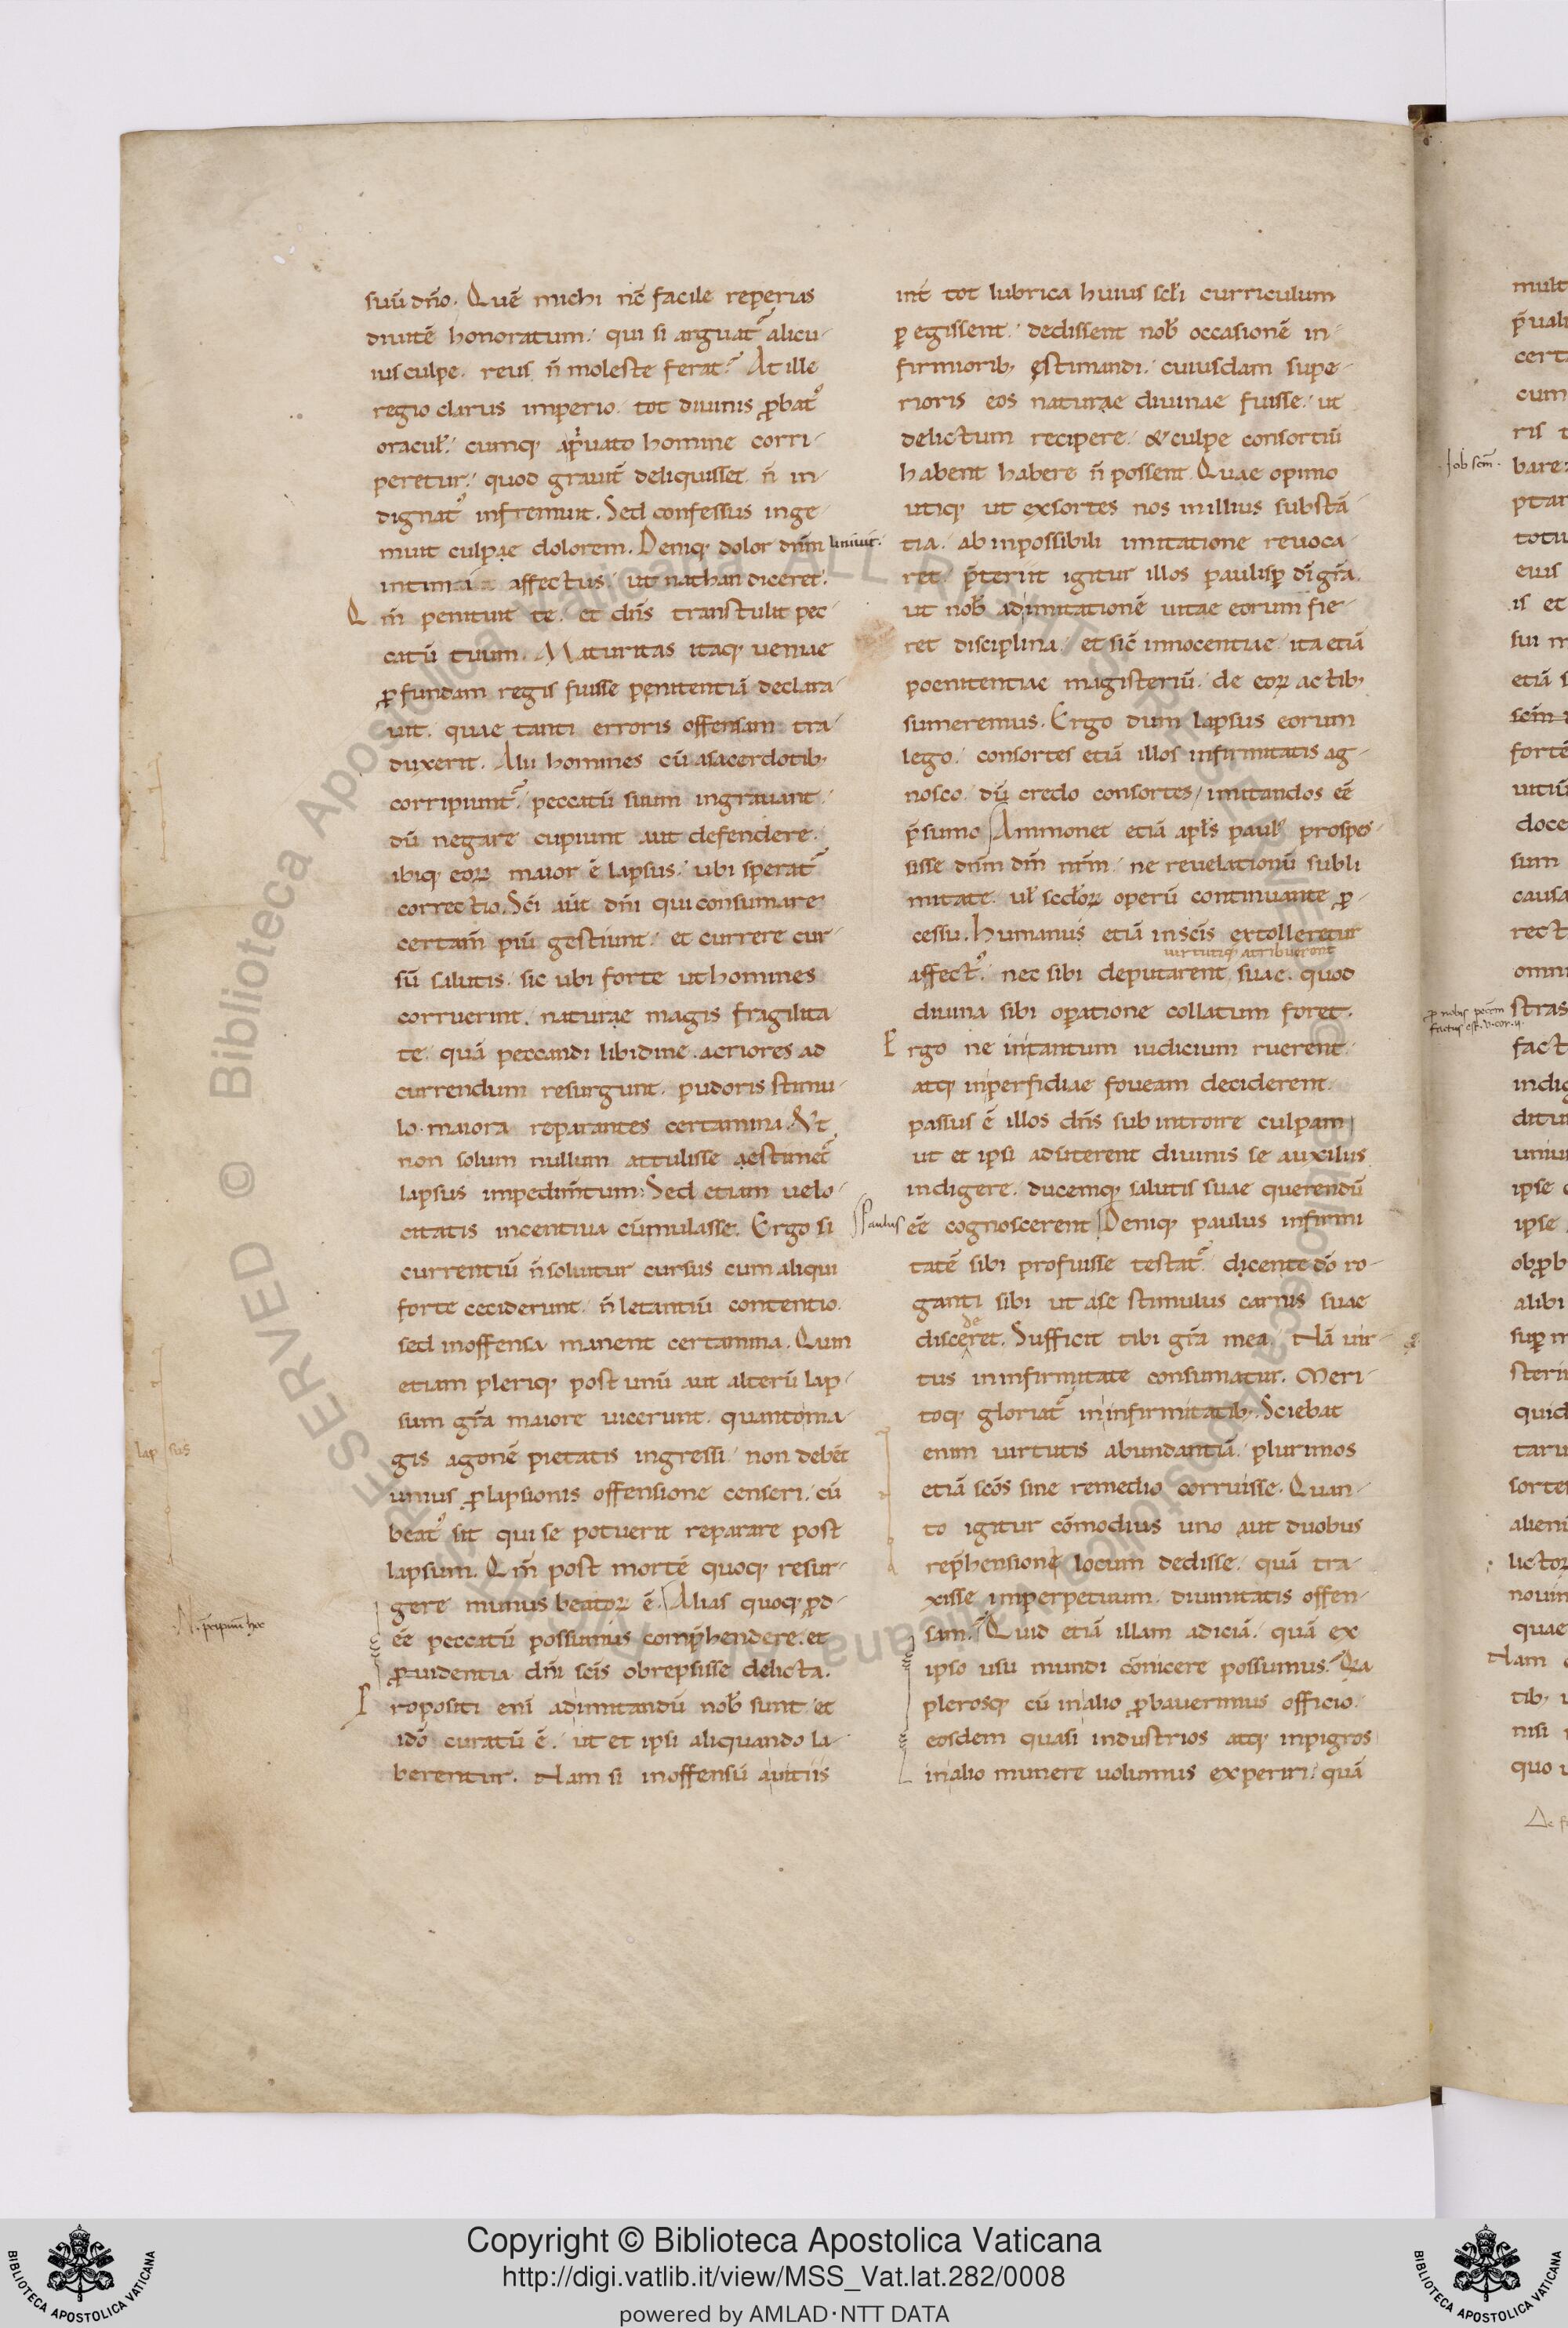 suū dño. Quē michi nc̄ facile reperias
diuitē honoratum. qui si arguat᷑ alicu-
ius culpe. reus n̄ moleste ferat. At ille
regio clarus imperio. tot diuinis ꝓbatꝰ
oracul̵. cumq; apͥuato homine corri-
peretur. quod grauit̄ deliquisset. n̄ in-
dignatꝰ infremuit. Sed confessus inge-
muit culpae dolorem. Deniq; dolor dñm liniuit.
intimi affectus. ut nathan diceret.
Qm̄ penituit te. et dñs transtulit pec
catū tuum. Maturitas itaq; ueniae
ꝓfundam regis fuisse penitentiā declara-
uit. quae tanti erroris offensam tra-
duxerit. Alii homines cū asacerdotib;
corripiunt᷑. peccatū suum ingrauant.
dū negare cupiunt aut defendere.
ibiq; eoꝝ maior ē lapsus. ubi sperat᷑
correctio. Sc̄i aūt dñi qui consumare
certam̄ piū gestiunt. et currere cur-
sū salutis. sic ubi forte ut homines
corruerint. naturae magis fragilita-
te. quā peccandi libidine. acriores ad
currendum resurgunt. pudoris stimu-
lo. maiora reparantes certamina. Vt
non solum nullum attulisse aestimet᷑
lapsus impedim̄tum. Sed etiam uelo-
citatis incentiua cūmulasse. Ergo si
currentiū n̄ soluitur cursus cum aliqui
forte ceciderunt. n̄ letantiū contentio.
sed inoffensa manent certamina. Qum
etiam pleriq; post unū aut alterū lap-
sum gr̄a maiore uicerunt. quantoma-
gis agonē pietatis ingressi. non debēt
unius ꝓlapsionis offensione censeri. cū
beatꝰ sit qui se potuerit reparare post
lapsum. Qm̄ post mortē quoq; resur-
gere munus beatoꝝ ē. Alias quoq; ꝓd-
eē peccatū possumus comp̄hendere. et
ꝓuidentia dñi sc̄is obrepsisse delicta.
Propositi eni adimitandū nob̄ sunt. et
idō curatū ē. ut et ipsi aliquando la-
berentur. Nam si inoffensū auitiis
lap sus
N. p̄cipuū hoc
int̄ tot lubrica huius scl̄i curriculum
ꝑegissent. dedissent nob̄ occasionē in-
firmiorib; ęstimandi. cuiusdam supe-
rioris eos naturae diuinae fuisse. ut
delictum recipere. & culpe consortiū
habent habere n̄ possent. Quae opinio
utiq; ut exsortes nos inillius substā-
tia. ab inpossibili imitatione reuoca-
ret. p̄teriit igitur illos paulisꝑ dī gr̄a.
ut nob̄ adimitationē uitae eorum fie-
ret disciplina. et sic̄ innocentiae. ita etiā
poenitentiae magisteriū. de eoꝝ actib;
sumeremus. Ergo dum lapsus eorum
lego. consortes etiā illos infirmitatis ag-
nosco. dū credo consortes, imitandos eē
p̄sumo. Ammonet etiā apl̄s paulꝰ prospex-
sisse dñm dm̄ nr̄m. ne reuelationū subli
mitate. ul̵ secl̄oꝝ operū continuante ꝓ-
cessu. humanus etiā in sc̄is extolleretur
uirtutiq; atribuerent
affectꝰ. nec sibi deputarent suae. quod
diuina sibi oꝑatione collatum foret.
Ergo ne intantum iudicium ruerent.
atq; inperfidiae foueam deciderent.
passus ē illos dñs subintroire culpam
ut et ipsi aduterent diuinis se auxiliis
indigere. ducemq; salutis suae querendū
Paulus
eē cognoscerent. Deniq; paulus infirmi
tatē sibi profuisse testat᷑. dicente dō ro-
ganti sibi ut ase stimulus carnis suae
de
disceret. Sufficit tibi gr̄a mea. Nā uir-
tus ininfirmitate consumatur. Meri-
toq; gloriat᷑ ininfirmitatib; Sciebat
enim uirtutis abundantiā. plurimos
etiā sc̄os sine remedio corruisse. Quan-
to igitur cōmodius uno aut duobus
rep̄hensione locum dedisse. quā tra-
xisse imperpetuum. diuinitatis offen-
sam. Quid etiā illam adiciā. quā ex
ipso usu mundi cōnicere possumus. Qa
plerosq; cū inalio ꝓbauerimus officio.
eosdem quasi industrios atq; inpigros
inalio munere uolumus experiri. quā
Iob scm̄.
ꝓ nobis pcc̄m
factus est. ii. cor. u.
mult
cert
cum
ris
bare
ptar
totu
eius
is et
sui
etiā
scm̄
forte
uitiū
doce
sum
causa
rect
omni
stras
fact
indig
ditu
uniu
ipse
ipse
obꝓb
alibi
suꝑ
steri
quid
taru
sorte
alieni
lictoꝝ
nouim
quae
Nam
tib;
nisi
quo
© Biblioteca Apostolica Vaticana ALL RIGHTS RESERVED
Copyright © Biblioteca Apostolica Vaticana
http://digi.vatlib.it/view/MSS_Vat.lat.282/0008
powered by AMLAD·NTT DATA
BIBLIOTECA APOSTOLICA VATICANA
BIBLIOTECA APOSTOLICA VATICANA